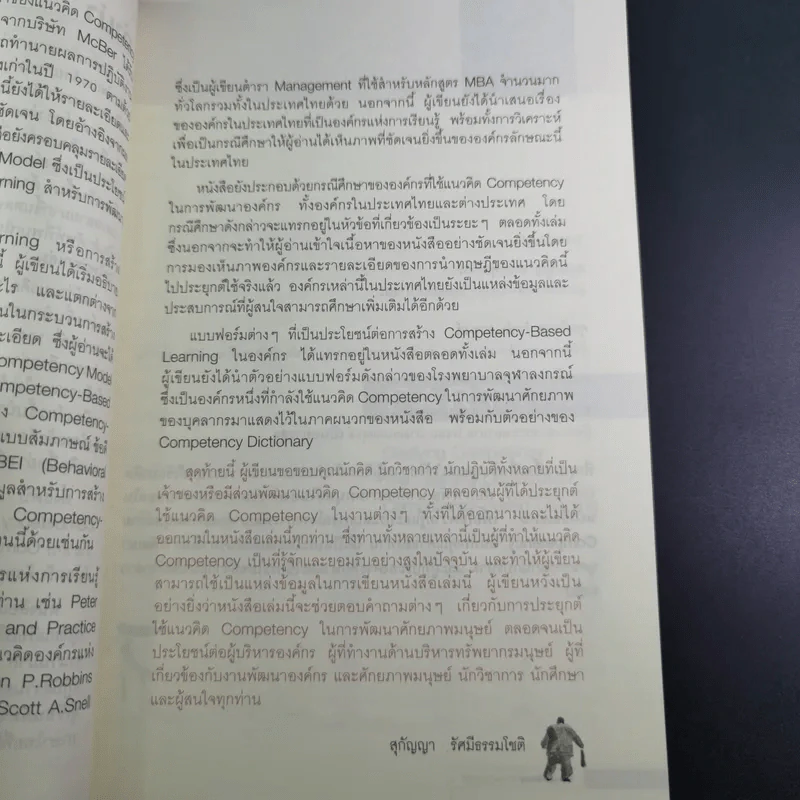 ของแนวคิด Competency
จากบริษัท McBer ได้
ถทำนายผลการปฏิบัติ
งเก่าในปี 1970 ตามด้วย
นี้ยังได้ให้รายละเอียด
ชัดเจน โดยอ้างอิงจาก
อยังครอบคลุมรายละเอียด
Model ซึ่งเป็นประโยชน์
rning สำหรับการพัฒนา
arning หรือการสร้าง
นี้ ผู้เขียนได้เริ่มอธิบาย
ะไร และแตกต่างจาก
นในกระบวนการสร้าง
ะเอียด ซึ่งผู้อ่านจะได้
ompetency Model
ompetency-Based
ง Competency-
แบบสัมภาษณ์ ข้อดี
BEI (Behavioral
มูลสำหรับการสร้าง
Competency-
วนนี้ด้วยเช่นกัน
รแห่งการเรียนรู้
ท่าน เช่น Peter
and Practice
วคิดองค์กรแห่ง
n P.Robbins
Scott A.Snell
ซึ่งเป็นผู้เขียนตำรา Management ที่ใช้สำหรับหลักสูตร MBA จำนวนมาก
ทั่วโลกรวมทั้งในประเทศไทยด้วย นอกจากนี้ ผู้เขียนยังได้นำเสนอเรื่อง
ขององค์กรในประเทศไทยที่เป็นองค์กรแห่งการเรียนรู้ พร้อมทั้งการวิเคราะห์
เพื่อเป็นกรณีศึกษาให้ผู้อ่านได้เห็นภาพที่ชัดเจนยิ่งขึ้นขององค์กรลักษณะนี้
ในประเทศไทย
หนังสือยังประกอบด้วยกรณีศึกษาขององค์กรที่ใช้แนวคิด Competency
ในการพัฒนาองค์กร ทั้งองค์กรในประเทศไทยและต่างประเทศ โดย
กรณีศึกษาดังกล่าวจะแทรกอยู่ในหัวข้อที่เกี่ยวข้องเป็นระยะๆ ตลอดทั้งเล่ม
ซึ่งนอกจากจะทำให้ผู้อ่านเข้าใจเนื้อหาของหนังสืออย่างชัดเจนยิ่งขึ้นโดย
การมองเห็นภาพองค์กรและรายละเอียดของการนำทฤษฎีของแนวคิดนี้
ไปประยุกต์ใช้จริงแล้ว องค์กรเหล่านี้ในประเทศไทยยังเป็นแหล่งข้อมูลและ
ประสบการณ์ที่ผู้สนใจสามารถศึกษาเพิ่มเติมได้อีกด้วย
แบบฟอร์มต่างๆ ที่เป็นประโยชน์ต่อการสร้าง Competency-Based
Learning ในองค์กร ได้แทรกอยู่ในหนังสือตลอดทั้งเล่ม นอกจากนี้
ผู้เขียนยังได้นำตัวอย่างแบบฟอร์มดังกล่าวของโรงพยาบาลจุฬาลงกรณ์
ซึ่งเป็นองค์กรหนึ่งที่กำลังใช้แนวคิด Competency ในการพัฒนาศักยภาพ
ของบุคลากรมาแสดงไว้ในภาคผนวกของหนังสือ พร้อมกับตัวอย่างของ
Competency Dictionary
สุดท้ายนี้ ผู้เขียนขอขอบคุณนักคิด นักวิชาการ นักปฏิบัติทั้งหลายที่เป็น
เจ้าของหรือมีส่วนพัฒนาแนวคิด Competency ตลอดจนผู้ที่ได้ประยุกต์
ใช้แนวคิด Competency ในงานต่างๆ ทั้งที่ได้ออกนามและไม่ได้
ออกนามในหนังสือเล่มนี้ทุกท่าน ซึ่งท่านทั้งหลายเหล่านี้เป็นผู้ที่ทำให้แนวคิด
Competency เป็นที่รู้จักและยอมรับอย่างสูงในปัจจุบัน และทำให้ผู้เขียน
สามารถใช้เป็นแหล่งข้อมูลในการเขียนหนังสือเล่มนี้ ผู้เขียนหวังเป็น
อย่างยิ่งว่าหนังสือเล่มนี้จะช่วยตอบคำถามต่างๆ เกี่ยวกับการประยุกต์
ใช้แนวคิด Competency ในการพัฒนาศักยภาพมนุษย์ ตลอดจนเป็น
ประโยชน์ต่อผู้บริหารองค์กร ผู้ที่ทำงานด้านบริหารทรัพยากรมนุษย์ ผู้ที่
เกี่ยวข้องกับงานพัฒนาองค์กร และศักยภาพมนุษย์ นักวิชาการ นักศึกษา
และผู้สนใจทุกท่าน
สุกัญญา รัศมีธรรมโชติ